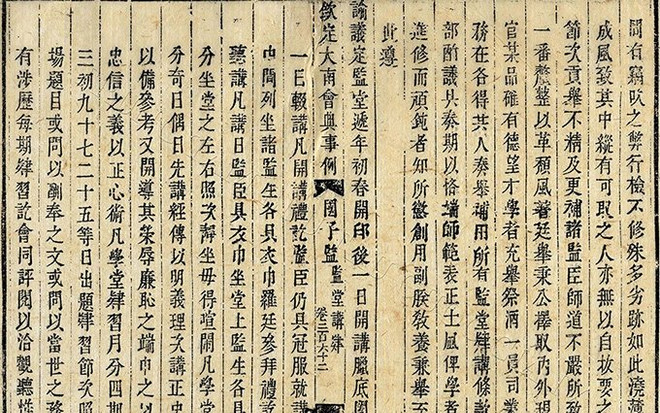 間有竊吹之弊行檢不修殊多劣跡如此澆
成風致其中縱有可取之人亦無以自拔要之
節次責舉不精及更補諸監臣師道不嚴所致
一番釐整以革頹風著廷舉秉公擇取內外現
官某品確有德望才學者充舉祭酒一員司業
務在各得其人奏舉補用所有監堂肄講條
部酌議具奏期以恰協師範表正士風俾學者
進修而頑鈍者知所懲創用副朕敎養兼舉至
此遵
諭議定監堂遞年初春開印後一日開講臘底
欽定大南會典事例 國子監 監堂講肄 卷二百六十二
一日輟講凡開講禮訖監臣仍具冠服就講
中間列坐諸監生各具衣巾羅廷參拜禮訖
聽講凡講日監臣具衣巾坐堂上監生各具
分坐堂之左右照次坐毋得喧鬧凡學堂
分奇日偶日先講經傳以明義理次講正史
以備參考又開導其榮辱廉恥之端巾之以
忠信之義以正心術凡學堂肄習月分四期
三初九十七二十五等日出題肄習節次照
場題目或問以制奉之文或問以當世之務
有涉歷每期肄習訖會同評閱以洽觀聽性